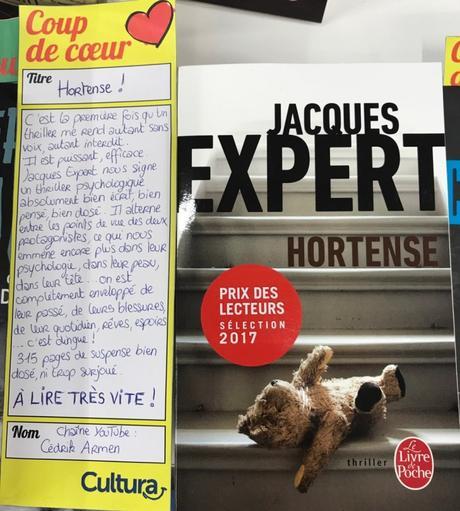 Coup
de cœur
Titre
Hortense !
C'est la première fois qu'un
thriller me rend autant sans
voix, autant interdit.
Il est puissant, efficace
Jacques Expert nous signe
un thriller psychologique
absolument bien écrit, bien
pensé, bien dosé. Il alterne
entre les points de vue des deux
protagonistes, ce qui nous
emmène encore plus dans leur
psychologie, dans leur peau,
dans leur tête... on est
complètement enveloppé de
leur passé, de leurs blessures,
de leur quotidien, rêves, espoirs
... c'est dingue !
315 pages de suspense bien
dosé, ni trop surjoué.
À LIRE TRÈS VITE !
Nom
Chaîne YouTube :
Cédrik Armen
Cultura
JACQUES
EXPERT
HORTENSE
PRIX DES
LECTEURS
SÉLECTION
2017
thriller
Le
Livre
de
Poche